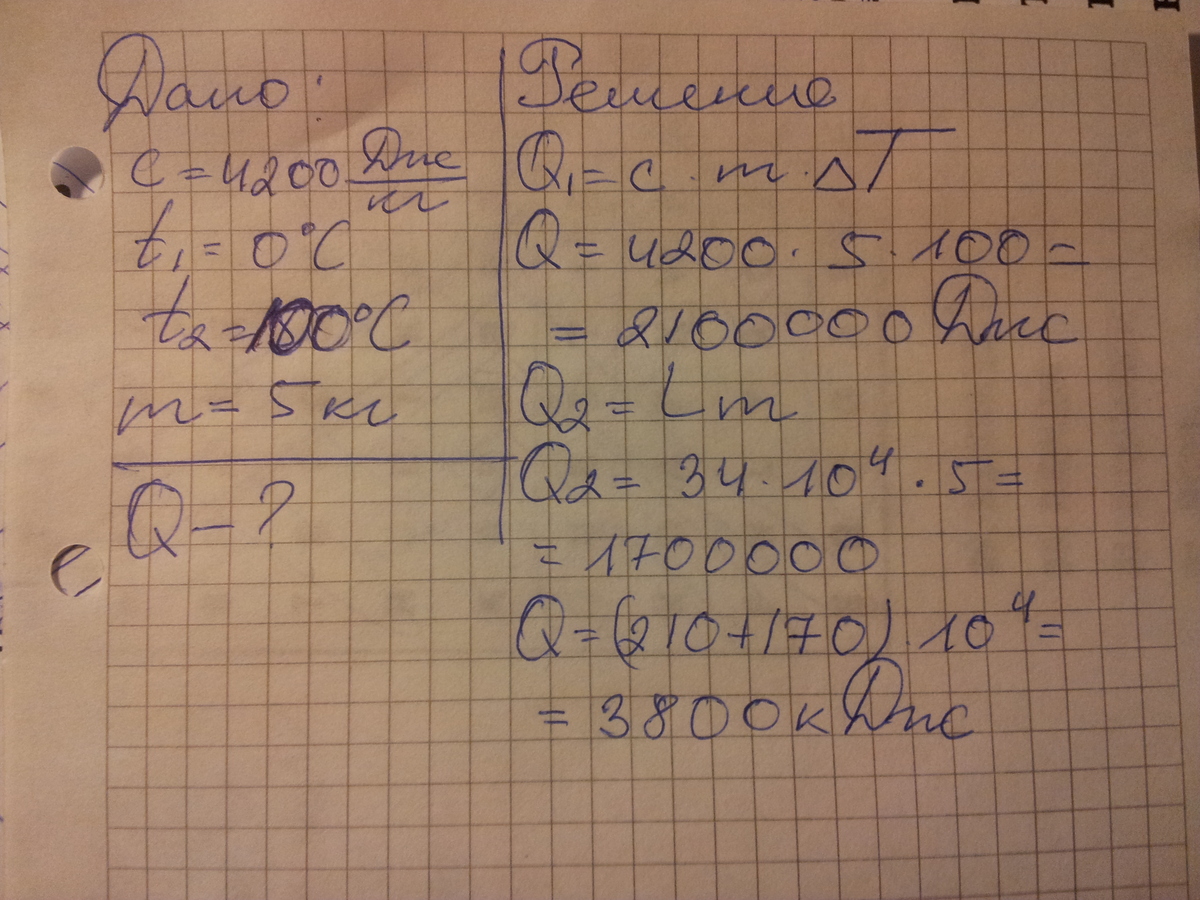 Дано:
c = 4200 Дж/кг
t₁ = 0°C
t₂ = 100°C
m = 5 кг
Q – ?
Решение
Q₁ = c · m · ΔT
Q = 4200 · 5 · 100 =
= 2100000 Дж
Q₂ = Lm
Q₂ = 34 · 10⁴ · 5 =
= 1700000
Q = (210+170) · 10⁴ =
= 3800 кДж